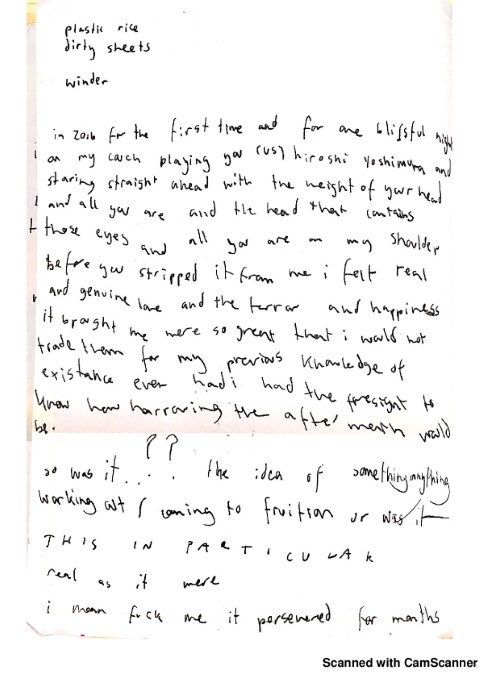 plastic rice
dirty sheets
winder
in 2016 for the first time and for one blissful night
on my couch playing you (us) hiroshi yoshimura and
staring straight ahead with the weight of your head
and all you are and the head that contains
those eyes and all you are on my shoulder
before you stripped it from me i felt real
and genuine love and the terror and happiness
it brought me were so great that i would not
trade them for my previous knowledge of
existance even had i had the foresight to
know how harrowing the aftermath would
be.
??
so was it . . . the idea of something/anything
working out / coming to fruition or was it
THIS IN PARTICULAR
real as it were
i mean fuck me it persevered for months
Scanned with CamScanner